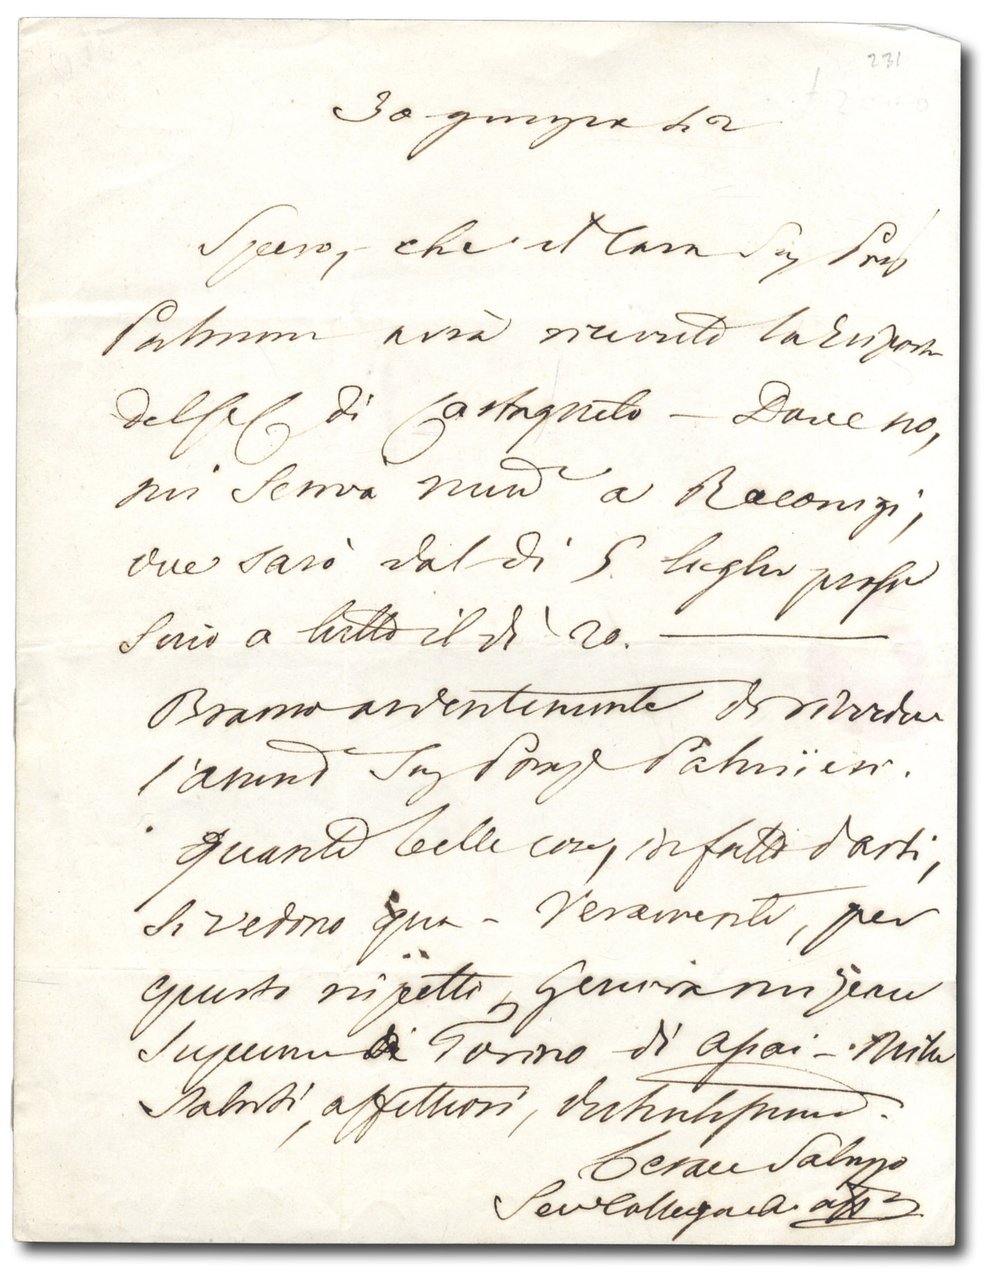 231
30 giugno 42
Spero, che il Caro Sig Prof
Palmieri avrà ricevuto la Risposta
del di Castagneto — Dove no,
mi scriva a Raconigi,
ove sarò dal dì 5. luglio pross
simo a tutto il dì 20. —
Bramo ardentemente di rivedere
l'amato Sig Palmieri.
Quante belle cose, in fatto d'arti,
si vedono qua - Veramente, per
questo rispetto, Genova mi pare
Superiore di Torino di assai - Mille
Saluti, affettuosi,
Cesare Saluzzo
Suo Collega ed aff